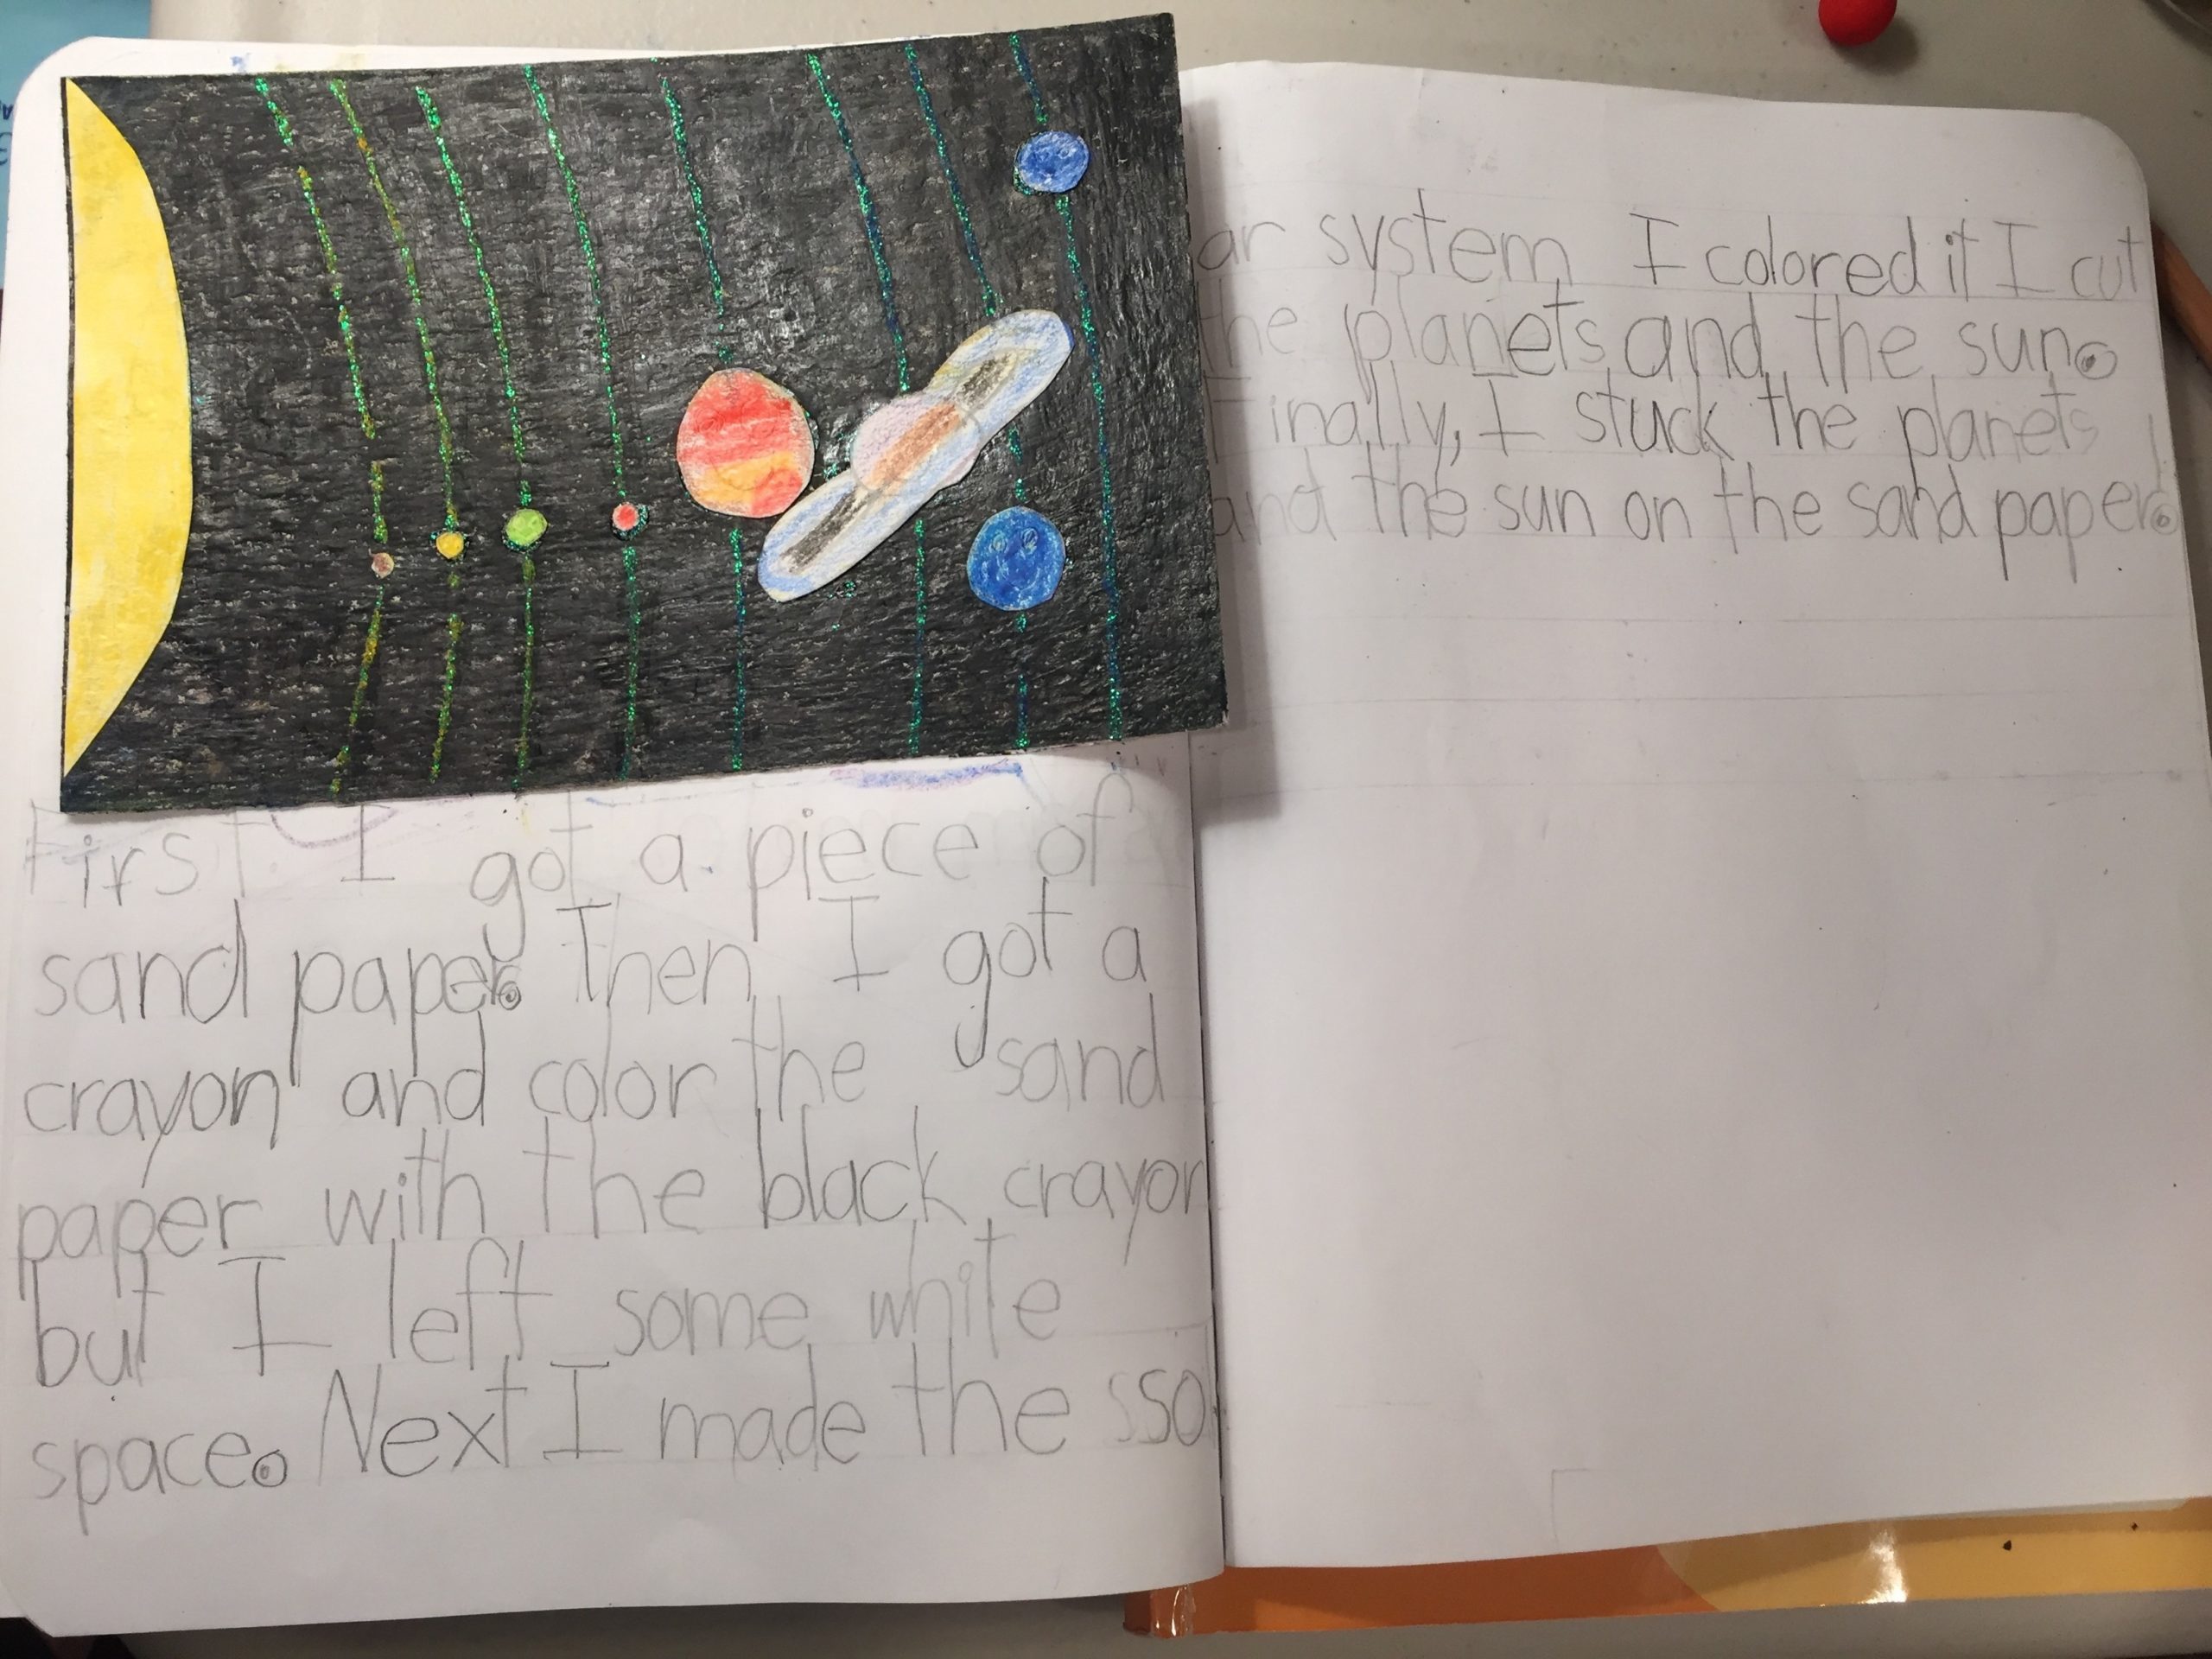 First I got a piece of
sand paper. Then I got a
crayon and color the sand
paper with the black crayon
but I left some white
space. Next I made the sso
ar system I colored it I cut
the planets and the sun.
Finally, I stuck the planets
and the sun on the sand paper.